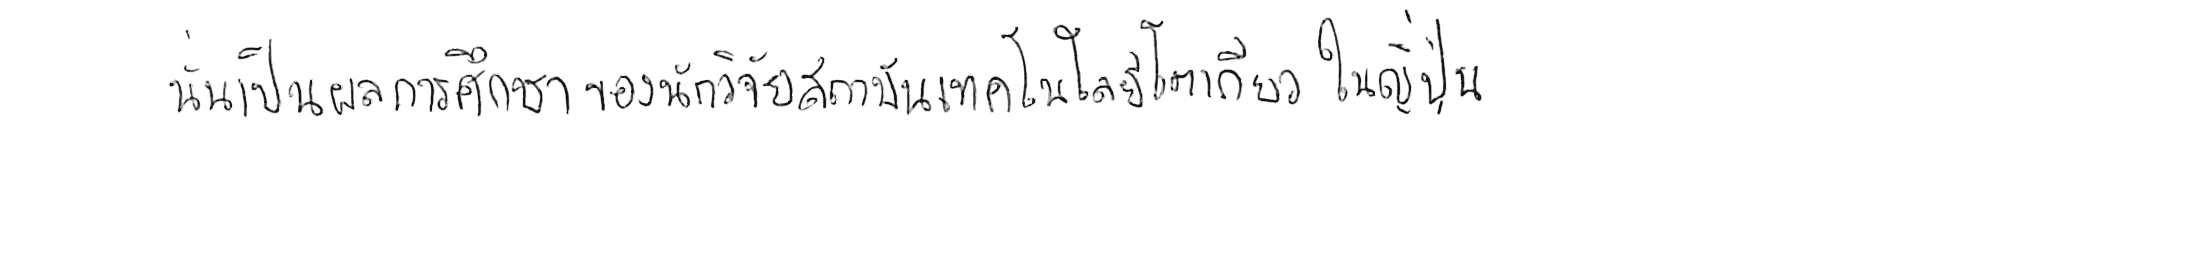 นั่นเป็นผลการศึกษา ของนักวิจัยสถาบันเทคโนโลยีโตเกียว ในญี่ปุ่น